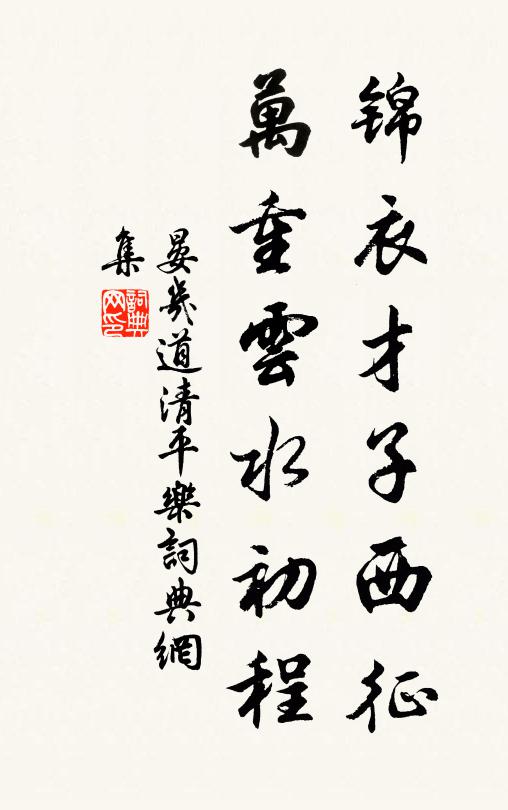 锦衣才子西征
萬重雲水初程
晏幾道清平樂詞典網
集
詞典网印